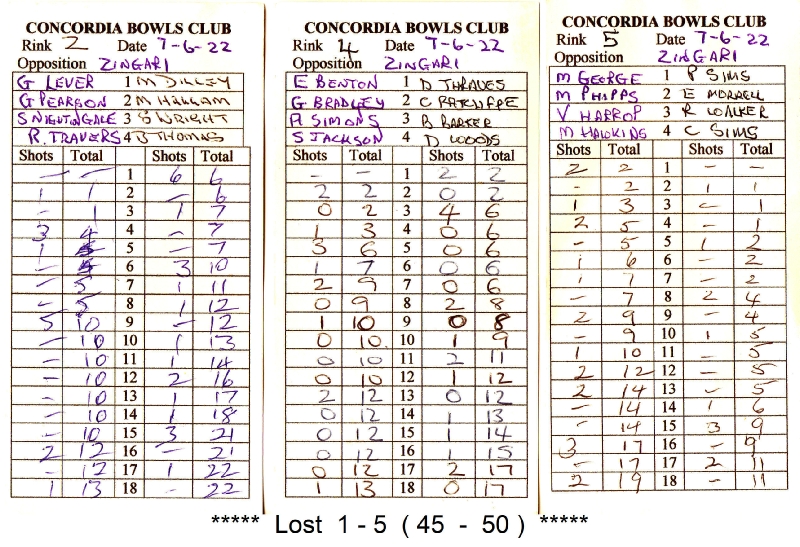 CONCORDIA BOWLS CLUB
Rink 2 Date 7-6-22
Opposition ZINGARI
G LEVER 1 M DILLEY
G PEARSON 2 M HALLAM
S NIGHTINGALE 3 S WRIGHT
R. TRAVERS 4 B THOMAS
Shots Total Shots Total
- - 1 6 6
1 1 2 - 6
- 1 3 1 7
3 4 4 - 7
1 5 5 - 7
- 5 6 3 10
- 5 7 1 11
- 5 8 1 12
5 10 9 - 12
- 10 10 1 13
- 10 11 1 14
- 10 12 2 16
- 10 13 1 17
- 10 14 1 18
- 10 15 3 21
2 12 16 - 21
- 12 17 1 22
1 13 18 - 22
CONCORDIA BOWLS CLUB
Rink 4 Date 7-6-22
Opposition ZINGARI
E BENTON 1 D THRAVES
G BRADLEY 2 C RATCLIFFE
A SIMONS 3 B BARKER
S JACKSON 4 D WOODS
Shots Total Shots Total
- - 1 2 2
2 2 2 0 2
0 2 3 4 6
1 3 4 0 6
3 6 5 0 6
1 7 6 0 6
2 9 7 0 6
0 9 8 2 8
1 10 9 0 8
0 10 10 1 9
0 10 11 2 11
0 10 12 1 12
2 12 13 0 12
0 12 14 1 13
0 12 15 1 14
0 12 16 1 15
0 12 17 2 17
1 13 18 0 17
CONCORDIA BOWLS CLUB
Rink 5 Date 7-6-22
Opposition ZINGARI
M GEORGE 1 P SIMS
M PHIPPS 2 E MORRELL
V HARROP 3 R WALKER
M HAWKINS 4 C SIMS
Shots Total Shots Total
2 2 1 - -
- 2 2 1 1
1 3 3 - 1
2 5 4 - 1
- 5 5 1 2
1 6 6 - 2
1 7 7 - 2
- 7 8 2 4
2 9 9 - 4
- 9 10 1 5
1 10 11 - 5
2 12 12 - 5
2 14 13 - 5
- 14 14 1 6
- 14 15 3 9
3 17 16 - 9
- 17 17 2 11
2 19 18 - 11
***** Lost 1 - 5 ( 45 - 50 ) *****